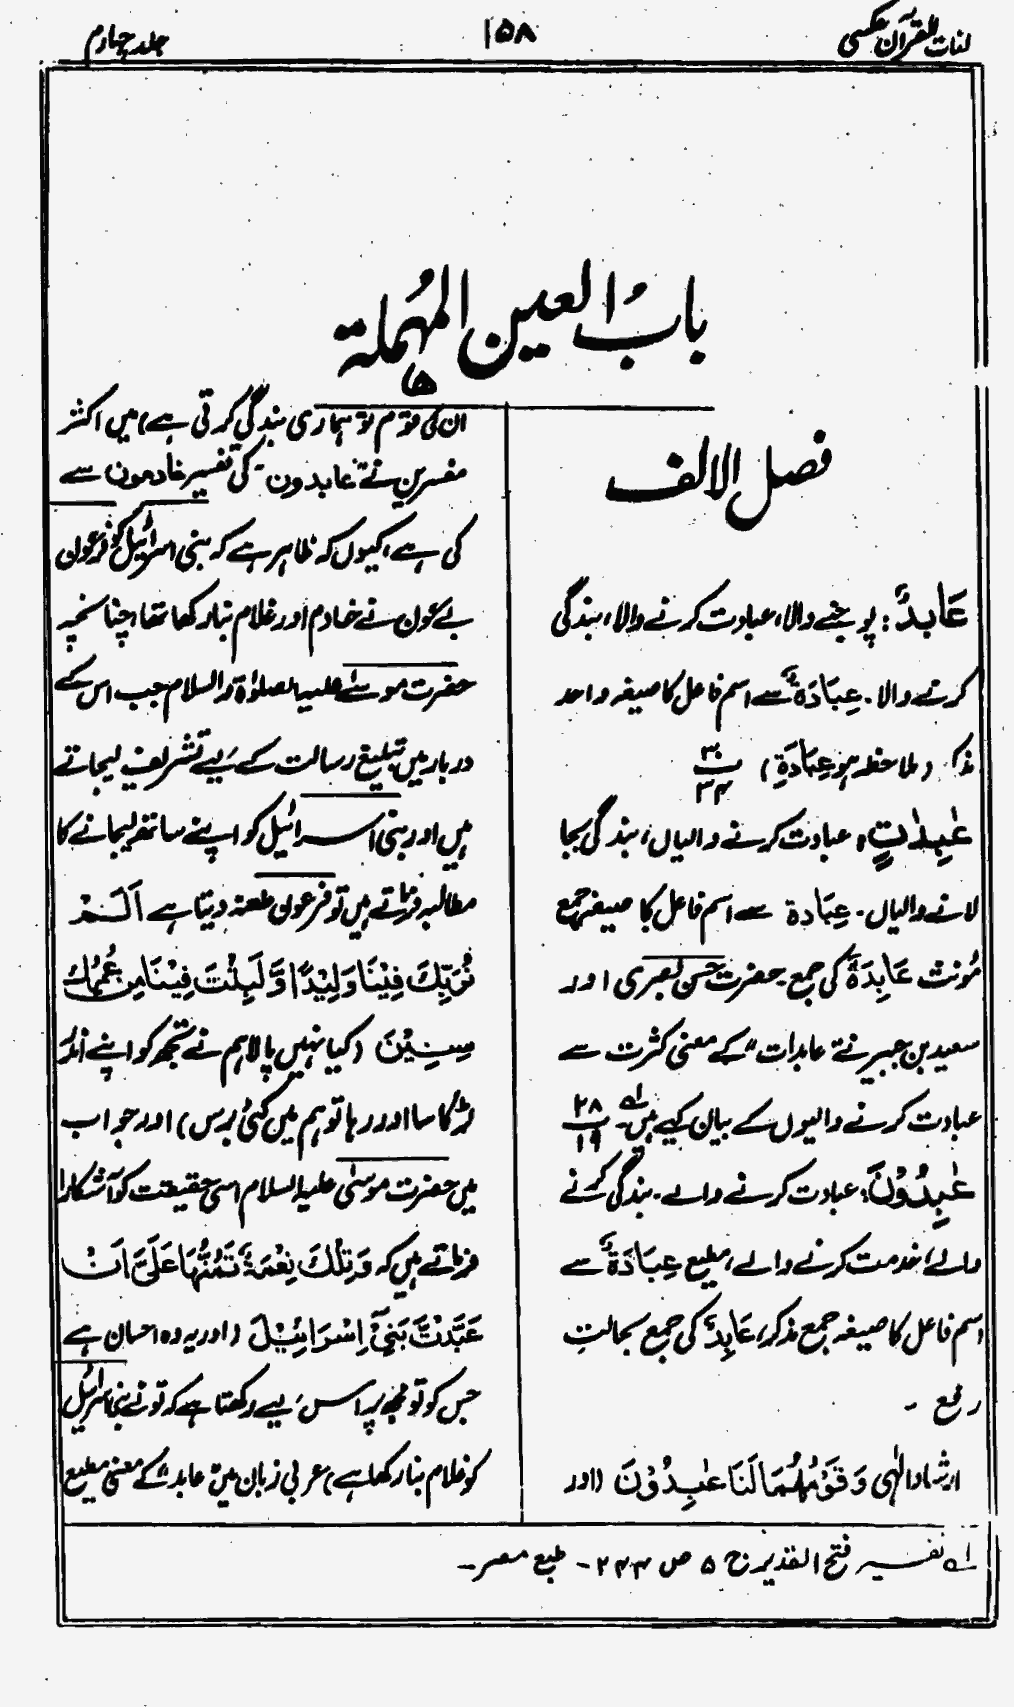 لغات القرآن عکسی
۱۵۸
جلد چہارم
بابُ العین المُہملة
فصل الالف
عَابِدٌ: پوجنے والا، عبادت کرنے والا، بندگی
کرنے والا۔ عِبَادَةٌ سے اسم فاعل کا صیغہ واحد
مذکر (ملاحظہ ہو عِبَادَةِ) ۳۰/۳۴
عٰبِدٰتٍ: عبادت کرنے والیاں، بندگی بجا
لانے والیاں۔ عِبَادة سے اسم فاعل کا صیغہ جمع
مُونث عَابِدَةٌ کی جمع۔ حضرت حسن بصری اور
سعید بن جبیر نے "عابدات" کے معنی کثرت سے
عبادت کرنے والیوں کے بیان کیے ہیں۔ لہ ۲۸/۱۹
عٰبِدُوْنَ: عبادت کرنے والے۔ بندگی کرنے
والے، خدمت کرنے والے، مطیع عِبَادَةٌ سے
اسم فاعل کا صیغہ جمع مذکر، عَابِدٌ کی جمع بحالتِ
رفع ۔
ارشاد الٰہی وَقَوْمُهُمَا لَنَا عٰبِدُوْنَ (اور
ان کی قوم تو ہماری بندگی کرتی ہے) میں اکثر
مفسرین نے "عابدون" کی تفسیر خادمون سے
کی ہے، کیوں کہ ظاہر ہے کہ بنی اسرائیل کو فرعون
بے عون نے خادم اور غلام بنا رکھا تھا، چنانچہ
حضرت موسےٰ علیہ الصلوٰة والسلام جب اس کے
دربار میں تبلیغ رسالت کے لیے تشریف لیجاتے
ہیں اور بنی اسرائیل کو اپنے ساتھ لیجانے کا
مطالبہ فرماتے ہیں تو فرعون طعنہ دیتا ہے اَلَمْ
نُرَبِّكَ فِيْنَا وَلِيْدًا وَّلَبِثْتَ فِيْنَا مِنْ عُمُرِكَ
سِنِيْنَ (کیا نہیں پالا ہم نے تجھ کو اپنے اندر
لڑکا سا اور رہا تو ہم میں کئی برس) اور جواب
میں حضرت موسٰی علیہ السلام اسی حقیقت کو آشکارا
فرماتے ہیں کہ وَتِلْكَ نِعْمَةٌ تَمُنُّهَا عَلَيَّ اَنْ
عَبَّدْتَّ بَنِيْٓ اِسْرَائِيْلَ (اور یہ وہ احسان ہے
جس کو تو مجھ پر اس لیے رکھتا ہے کہ تونے بنی اسرائیل
کو غلام بنا رکھا ہے) عربی زبان میں "عابد" کے معنی مطیع
لہ تفسیر فتح القدیر ج ۵ ص ۲۴۴۔ طبع مصر۔